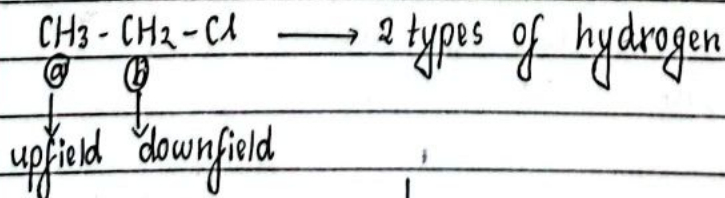 CH3 - CH2 - Cl ⟶ 2 types of hydrogen
ⓐ ⓑ
↓ ↓
upfield downfield